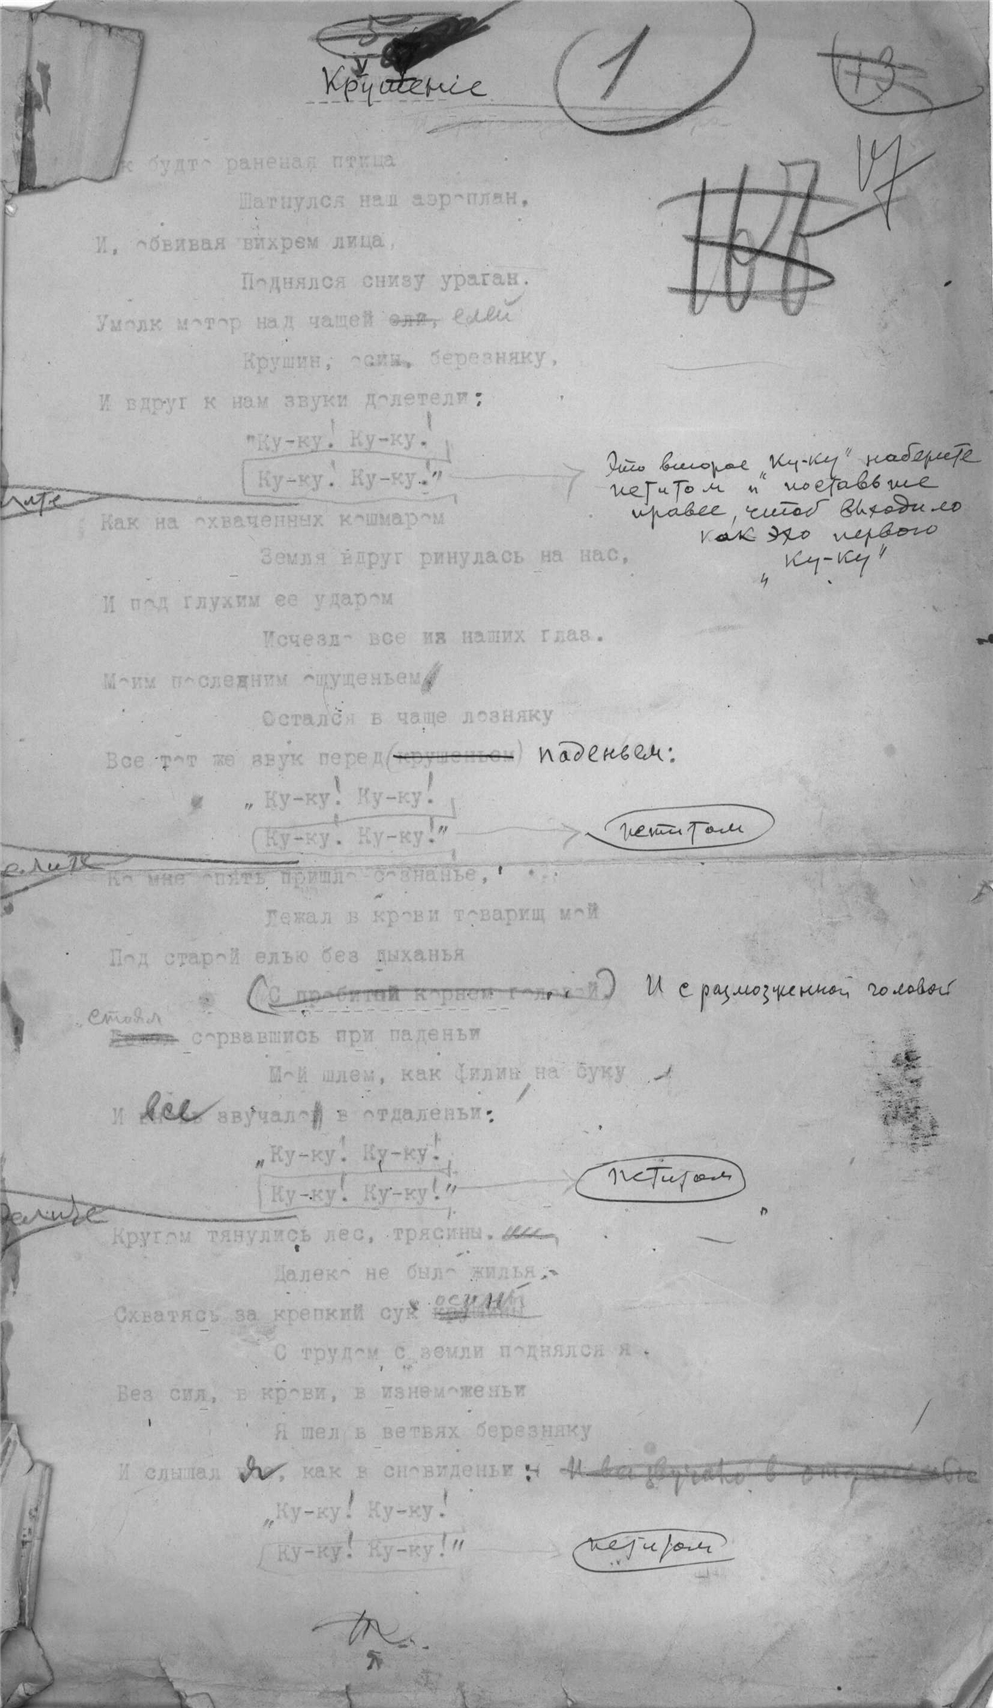 5
1
113
Крушеніе
17
166
к будто раненая птица
Шатнулся наш аэроплан,
И, обвивая вихрем лица,
Поднялся снизу ураган.
Умолк мотор над чащей ели, елей
Крушин, осин, березняку,
И вдруг к нам звуки долетели:
"Ку-ку! Ку-ку!
Ку-ку! Ку-ку!"
Это второе "Ку-ку" наберите
петитом и поставьте
правее, чтоб выходило
как эхо первого
"Ку-ку"
Как на охваченных кошмаром
Земля вдруг ринулась на нас,
И под глухим ее ударом
Исчезло все из наших глаз.
Моим последним ощущеньем
Остался в чаще лозняку
Все тот же звук перед (крушеньем) паденьем:
„Ку-ку! Ку-ку!
Ку-ку! Ку-ку!"
петитом
Ко мне опять пришло сознанье,
Лежал в крови товарищ мой
Под старой елью без дыханья
(С пробитой корнем головой.) И с размозженной головой
стоял
Лежал сорвавшись при паденьи
Мой шлем, как филин, на буку
И все звучало в отдаленьи:
„Ку-ку! Ку-ку!
Ку-ку! Ку-ку!"
петитом
Кругом тянулись лес, трясины.
Далеко не было жилья.
осины
Схватясь за крепкий сук крушины
С трудом с земли поднялся я.
Без сил, в крови, в изнеможеньи
Я шел в ветвях березняку
И слышал я, как в сновиденьи: И все звучало в отдаленьи
„Ку-ку! Ку-ку!
Ку-ку! Ку-ку!"
петитом